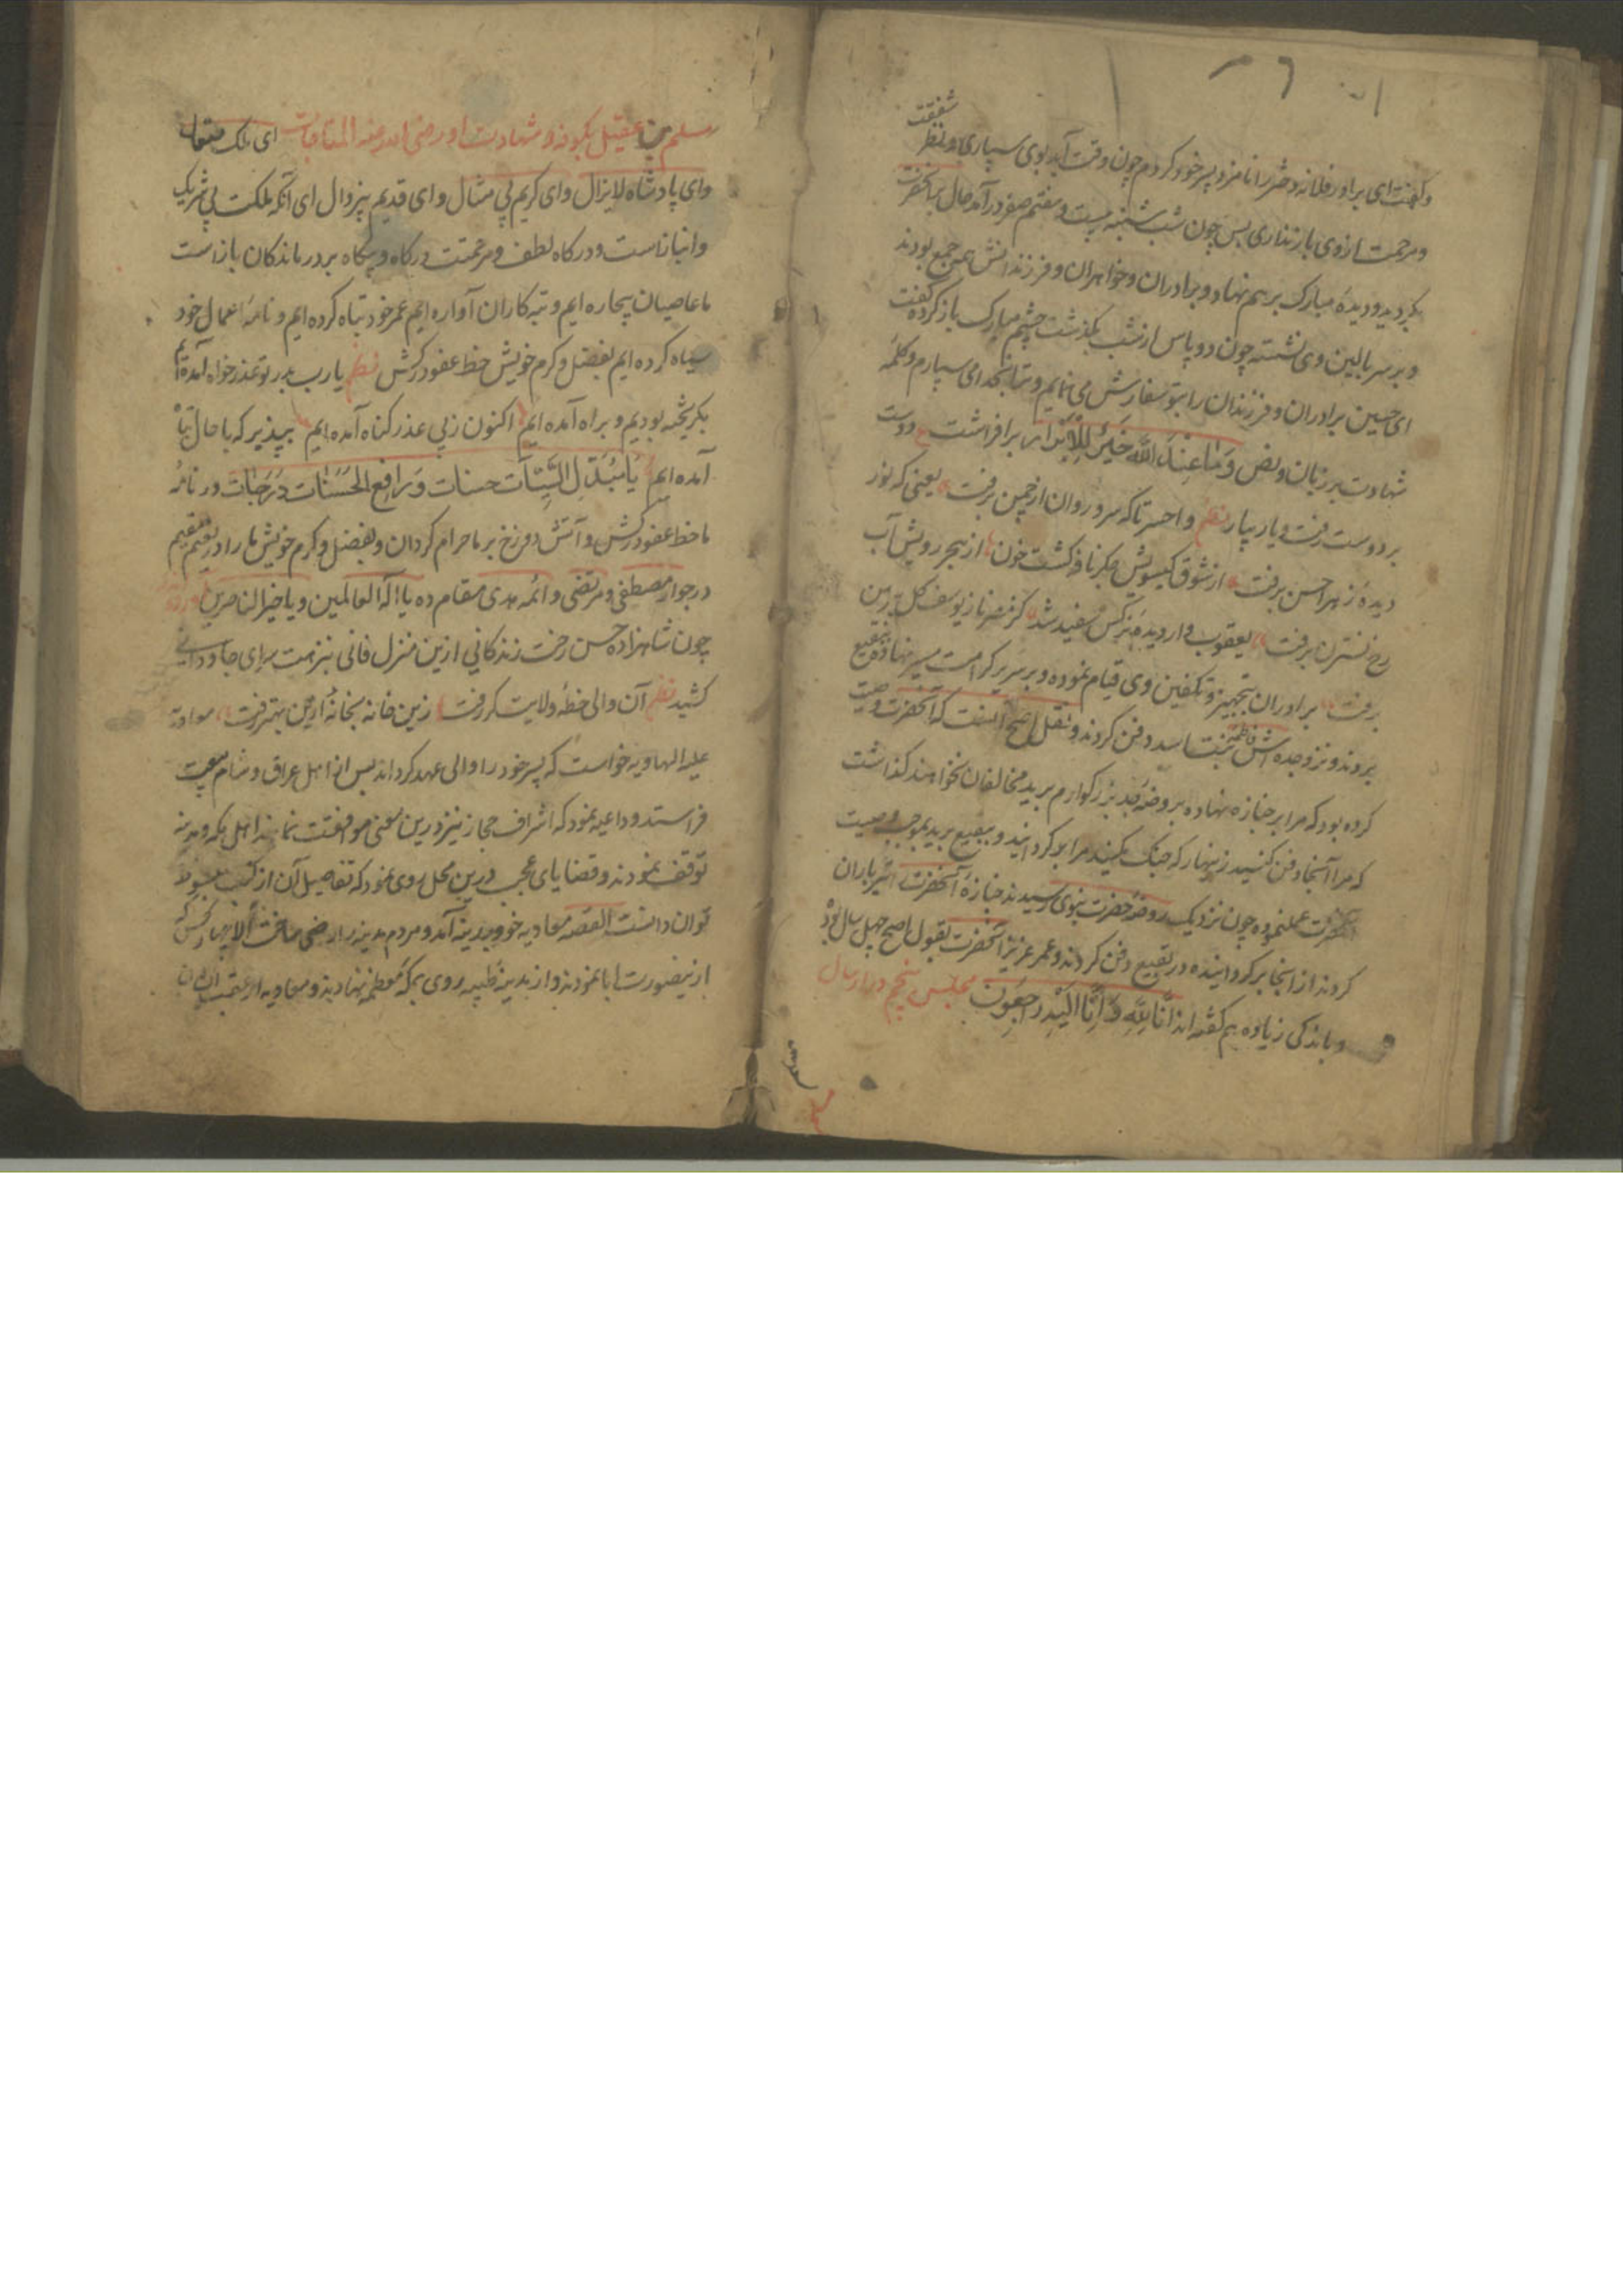 شفقت
وگفت ای برادر فلانه دختر را نامزد پسر خود کردم چون وقت آید بوی سپاری و نظر
ومرحمت از وی باز نداری پس چون شب شنبه بیست و هفتم صفر درآمد حال بر آنحضرت
بگردید و دیدهٔ مبارک بر هم نهاد و برادران و خواهران و فرزندانش همه جمع بودند
و بر سر بالین وی نشسته چون دو پاس از شب بگذشت چشم مبارک باز کرده گفت
ای حسین برادران و فرزندان را بتو سفارش می نمایم و ترا بخدا می سپارم و کلمهٔ
شهادت بر زبان و بض وَمَا عِنْدَ اللّٰهِ خَیْرٌ لِلْاَبْرَار بر افراشت ع دوست
بر دوست رفت و یار بیار نظم واحسرتا که سرو روان از چمن برفت یعنی که نور
دیدهٔ زهرا حسن برفت از شوق گیسویش جگر نافه گشت خون از هجر رویش آب
رخ نسترن برفت یعقوب وار دیدهٔ نرگس سفید شد کز مصر ناز یوسف گل پیرهن
برفت برادران بتجهیز و تکفین وی قیام نموده و بر سریر کرامت مسیر نهاده ببقیع
بردند و نزد جده اش فاطمه بنت اسد دفن کردند و نقل اصح آنست که آنحضرت وصیت
کرده بود که مرا بر جنازه نهاده بروضهٔ جد بزرگوارم برید مخالفان نخواهند گذاشت
که مرا آنجا دفن کنید زینهار که جنگ مکنید مرا بر گردانید و ببقیع برید بموجب وصیت
آنحضرت عمل نموده چون نزدیک روضهٔ حضرت نبوی رسیدند جنازهٔ آنحضرت تیر باران
کردند از انجا بر گردانیده در بقیع دفن کردند و عمر عزیز آنحضرت بقول اصح چهل سال بود
و باندکی زیاده هم گفته اند اِنَّا لِلّٰهِ وَ اِنَّا اِلَیْهِ رَاجِعُونَ مجلس پنجم در ارسال
مسلم
مسلم بن عقیل بکوفه و شهادت او رضی الله عنه المناجات ای ملک متعال
وای پادشاه لایزال و ای کریم بی مثال و ای قدیم بیزوال ای آنکه ملکت بی شریک
وانباز است و درگاه لطف و مرحمتت درگاه و بیگاه بر درماندگان باز است
ما عاصیان بیچاره ایم و تبه کاران آواره ایم عمر خود تباه کرده ایم و نامهٔ اعمال خود
سیاه کرده ایم بفضل و کرم خویش خط عفو درکش نظم یارب بدر تو عذر خواه آمده ایم
بگریخته بودیم و براه آمده ایم اکنون ز پی عذر گناه آمده ایم بپذیر که با حال تباه
آمده ایم یَا مُبَدِّلَ السَّیِّئَات حسنات وَ رَافِعَ الْحَسَنَات دَرَجَات در نامهٔ
ما خط عفو درکش و آتش دوزخ بر ما حرام گردان و بفضل و کرم خویش ما را در نعیم مقیم
در جوار مصطفی و مرتضی و ائمه هدی مقام ده یا اله العالمین و یا خیر الناصرین
چون شاهزاده حسن رخت زندگانی ازین منزل فانی بنزهت سرای جاودانی
کشید نظم آن والی خطهٔ ولایت گر رفت زین خانه بخانهٔ ازین بهتر رفت معاویه
علیه الهاویه خواست که پسر خود را والی عهد گرداند پس از اهل عراق و شام بیعت
فراستد و داعیه نمود که اشراف حجاز نیز درین معنی موافقت نمایند اهل مکه و مدینه
توقف نمودند و قضایای عجب درین محل روی نمود که تفاصیل آن از کتب مبسوط
توان دانست القصه معاویه خود بمدینه آمد و مردم مدینه را راضی ساخت الا چهار کس که
ازینصورت ابا نمودند و از مدینهٔ طیبه روی بمکهٔ معظمه نهادند و معاویه از عقب ایشان